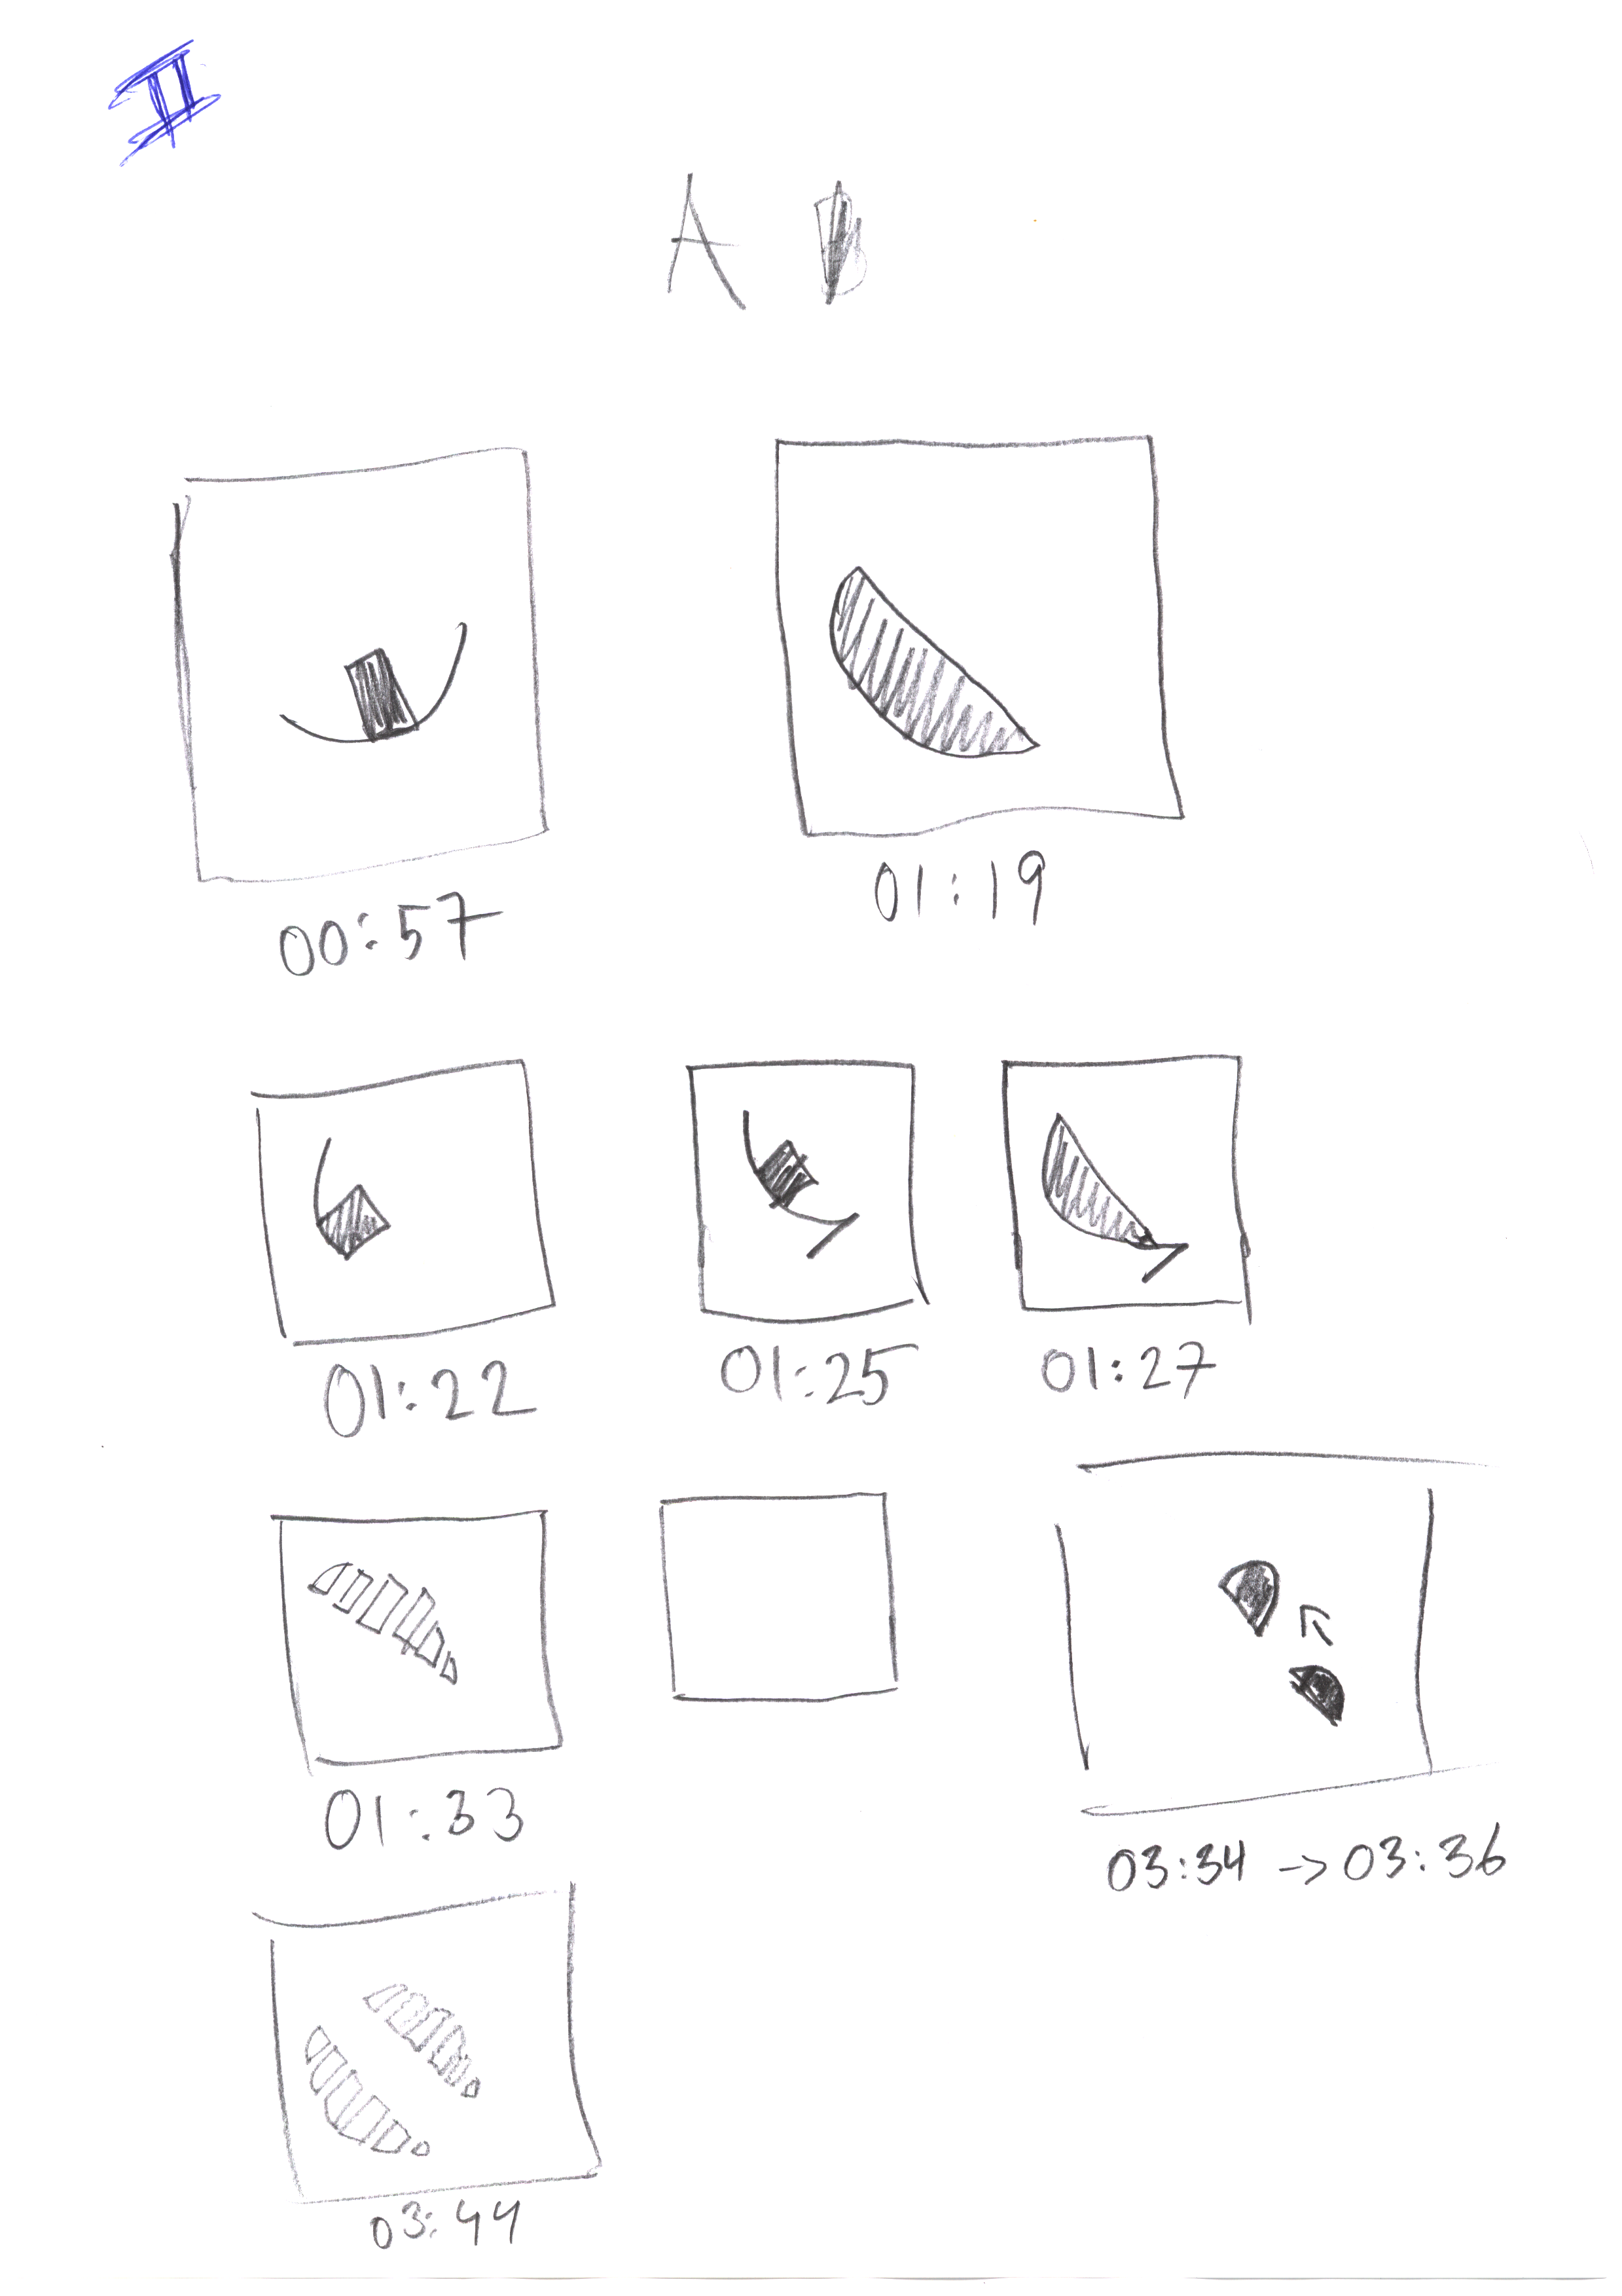 II
A B
00:57
01:19
01:22
01:25
01:27
01:33
03:34 -> 03:36
03:44